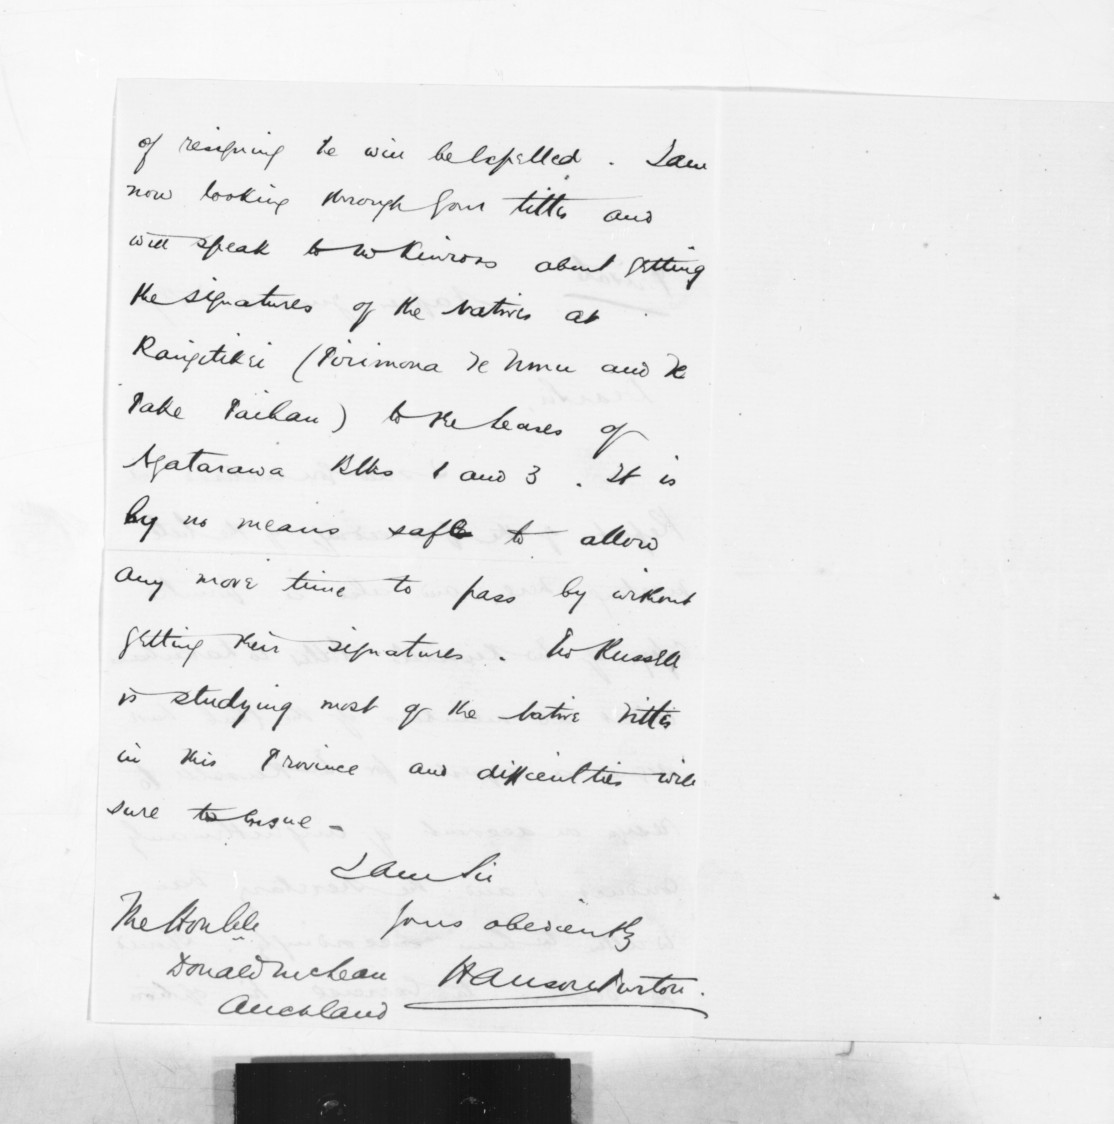 of resigning he will be expelled. I am
now looking through your titles and
will speak to Mr Kinross about getting
the signatures of the Natives at
Rangitikei (Pirimona Te Urnu and Te
Take Taihau) to the leases of
Ngatarawa Blks 1 and 3. It is
by no means safe to allow
any more time to pass by without
getting their signatures. Mr Russell
is studying most of the Native titles
in this Province and difficulties will
sure to ensue -
I am Sir
The Honble yours obediently
Donald McLean Hanson Turton.
Auckland